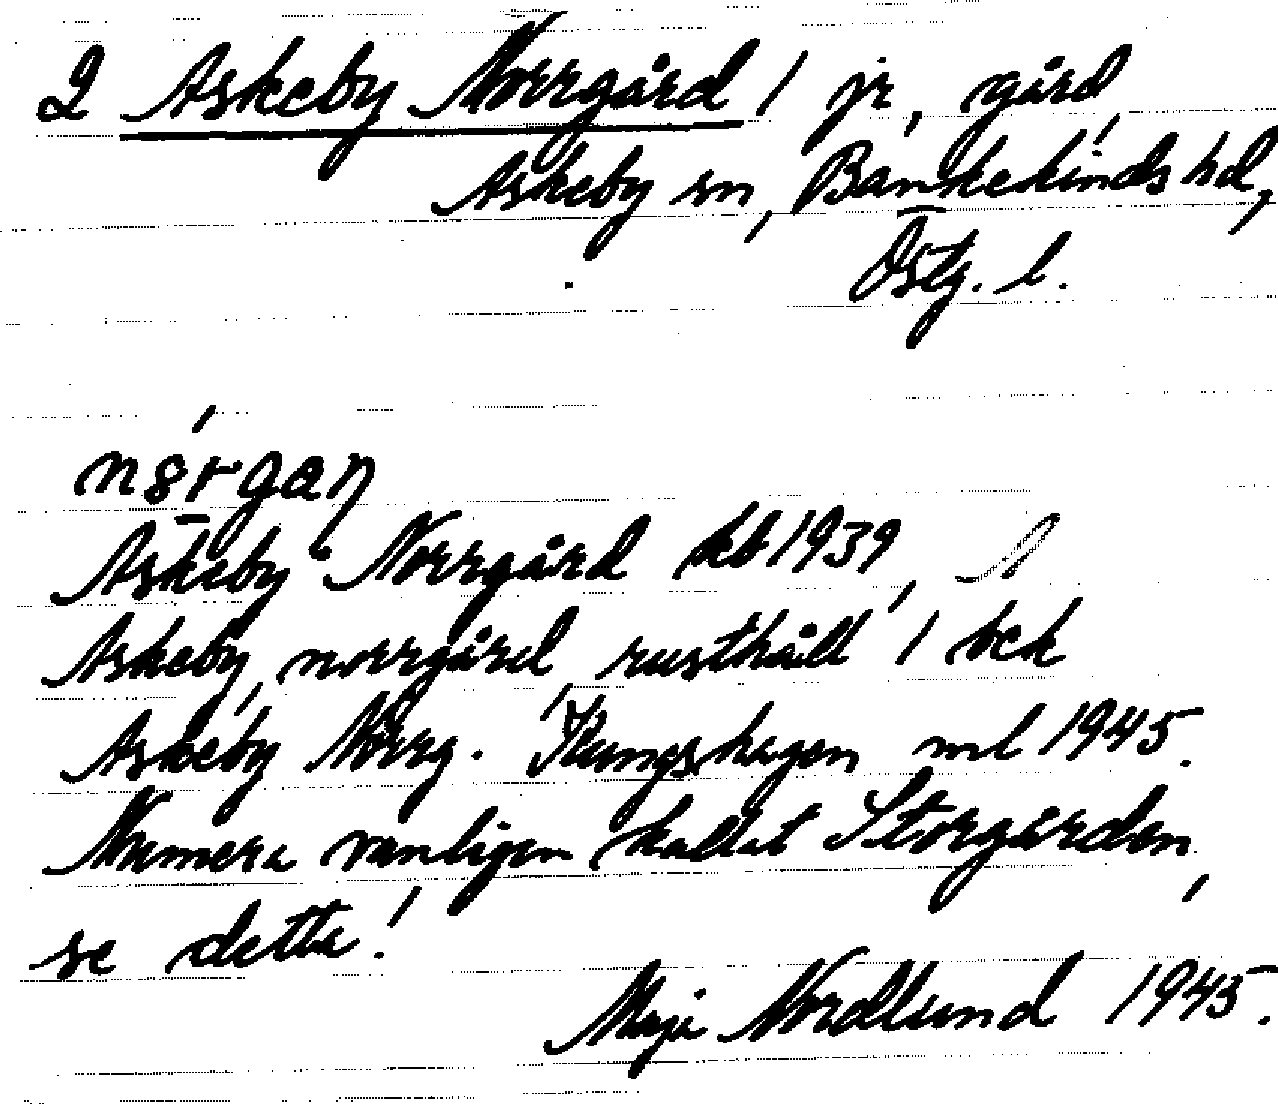 2 Askeby Norrgård / jr, gård
Askeby sn, Bankekinds hd,
Östg. l.
Askeby Norrgård kb 1939,
Askeby, norrgård rusthåll / bek
Askeby Norrg. Kungshagen ml 1945.
Numera vanligen kallat Storgården,
se detta!
Maja Nordlund 1945.